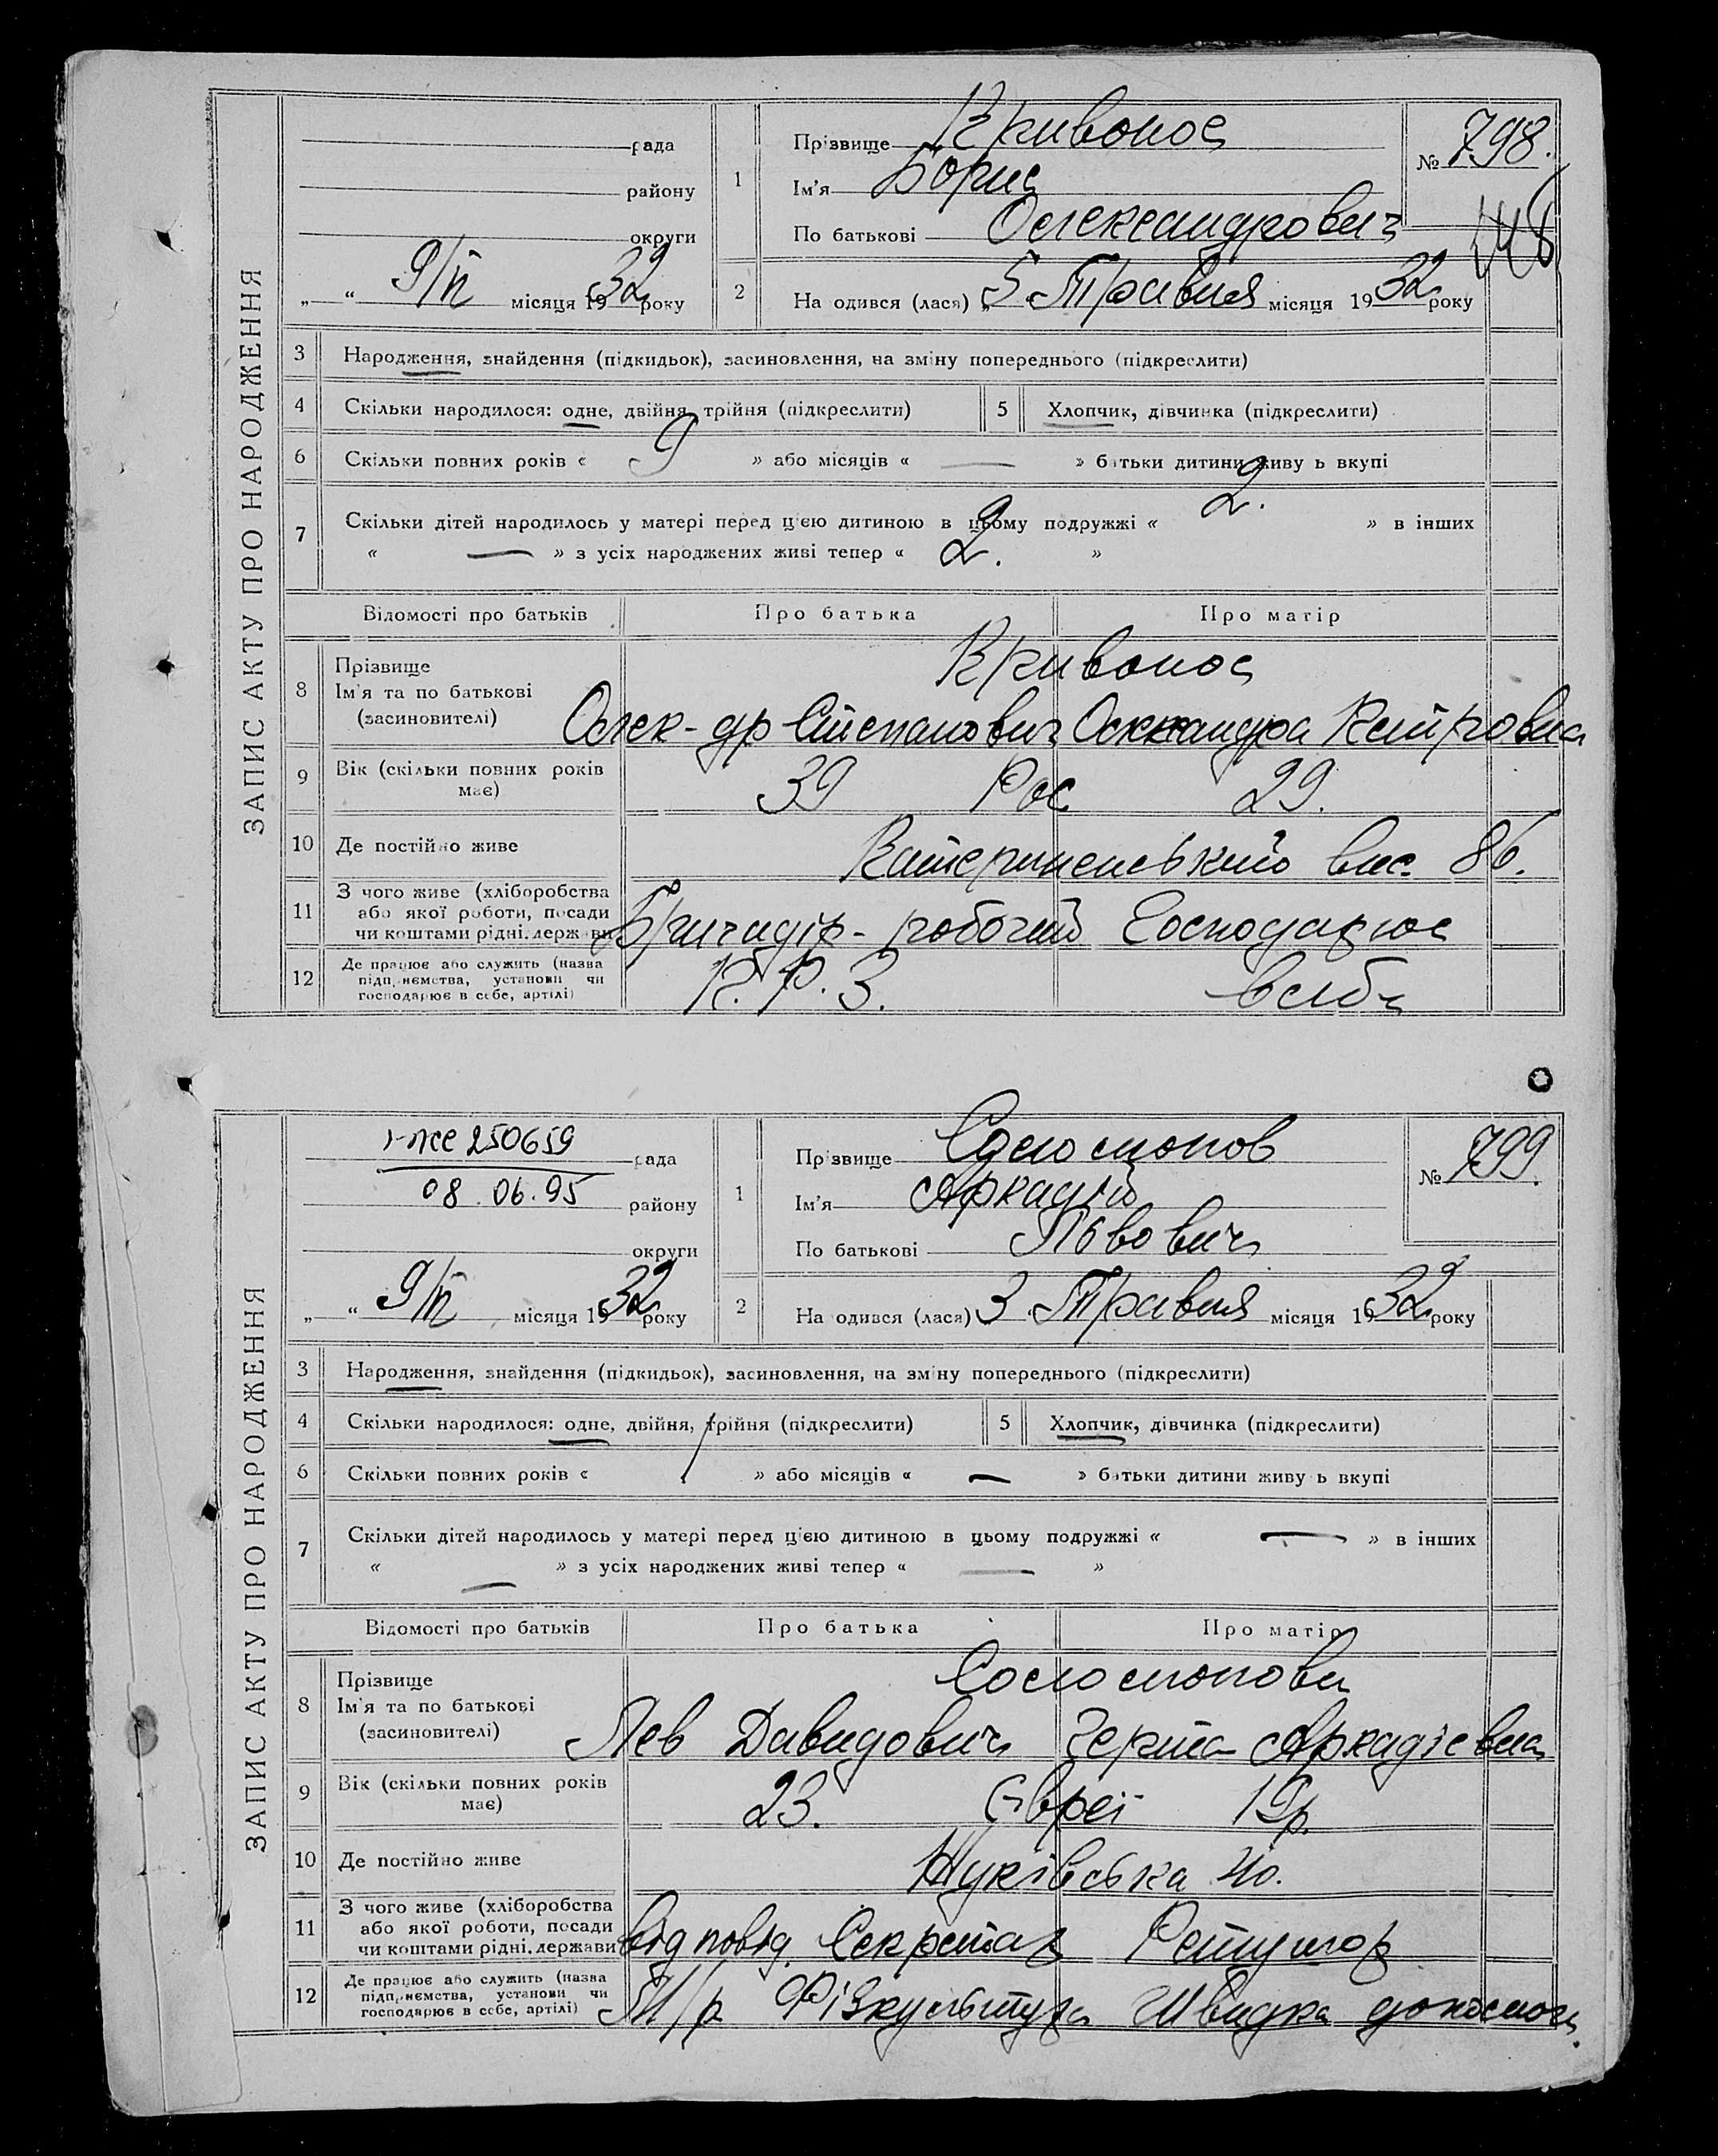 ЗАПИС АКТУ ПРО НАРОДЖЕННЯ
рада
району
округи
„ “ 9/V місяця 1932 року
1 Прізвище Кривонос
Ім'я Борис
По батькові Олександрович
№ 798.
2 На одився (лася) „5 Травня місяця 1932 року
3 Народження, знайдення (підкидьок), засиновлення, на зміну попереднього (підкреслити)
4 Скільки народилося: одне, двійня, трійня (підкреслити) 5 Хлопчик, дівчинка (підкреслити)
6 Скільки повних років « 9 » або місяців « — » батьки дитини живу ь вкупі
7 Скільки дітей народилось у матері перед цією дитиною в цьому подружжі « 2. » в інших
« — » з усіх народжених живі тепер « 2. »
Відомості про батьків Про батька Про матір
8 Прізвище Кривонос
Ім'я та по батькові
(засиновителі) Олек-др Степанович Олександра Петровна
9 Вік (скільки повних років має) 39 Рос 29.
10 Де постійно живе Катерененський вис. 86.
11 З чого живе (хліборобства
або якої роботи, посади
чи коштами рідні, держави Бригадір - робочий Господарює
12 Де працює або служить (назва
підприємства, установи чи
господарює в себе, артілі) К. Р. З. в себе
ЗАПИС АКТУ ПРО НАРОДЖЕННЯ
I-ЖС 250659 рада
08.06.95 району
округи
„ “ 9/V місяця 1932 року
1 Прізвище Соломонов
Ім'я Аркадій
По батькові Львович
№ 799.
2 На одився (лася) 3 Травня місяця 1932 року
3 Народження, знайдення (підкидьок), засиновлення, на зміну попереднього (підкреслити)
4 Скільки народилося: одне, двійня, трійня (підкреслити) 5 Хлопчик, дівчинка (підкреслити)
6 Скільки повних років « 1 » або місяців « — » батьки дитини живу ь вкупі
7 Скільки дітей народилось у матері перед цією дитиною в цьому подружжі « — » в інших
« — » з усіх народжених живі тепер « — »
Відомості про батьків Про батька Про матір
8 Прізвище Соломонови
Ім'я та по батькові
(засиновителі) Лев Давидович Герта Аркадієвна
9 Вік (скільки повних років має) 23. Євреї 19 р.
10 Де постійно живе 40.
11 З чого живе (хліборобства
або якої роботи, посади
чи коштами рідні, держави Відповід. Секретар Ретушор
12 Де працює або служить (назва
підприємства, установи чи
господарює в себе, артілі) Фізкультура Швидка допомога.